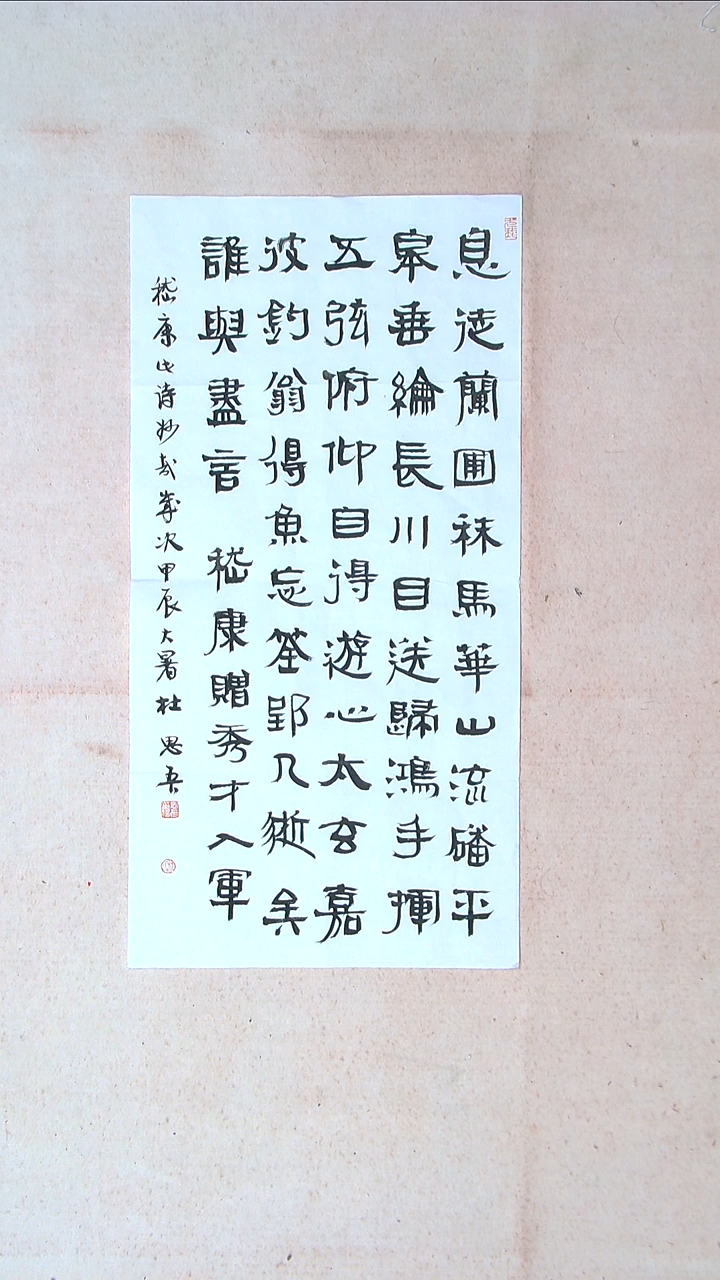 息徒蘭圃秣馬華山流磻平
皋垂綸長川目送歸鴻手揮
五弦俯仰自得遊心太玄嘉
彼釣翁得魚忘筌郢人逝矣
誰與盡言 嵇康贈秀才入軍
嵇康此诗妙哉歲次甲辰大暑杜思吾